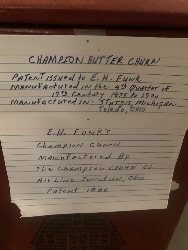 CHAMPION BUTTER CHURN
PATENT ISSUED TO E.H. FUNK
MANUFACTURED IN THE 4th QUARTER OF
19th CENTURY 1875 TO 1900
MANUFACTURED IN: STURGIS, MICHIGAN
TOLEDO, OHIO
E.H. FUNK'S
CHAMPION CHURN
MANUFACTURED BY
THE CHAMPION CHURN CO.
AIR LINE JUNCTION, OHIO
PATENT 1886